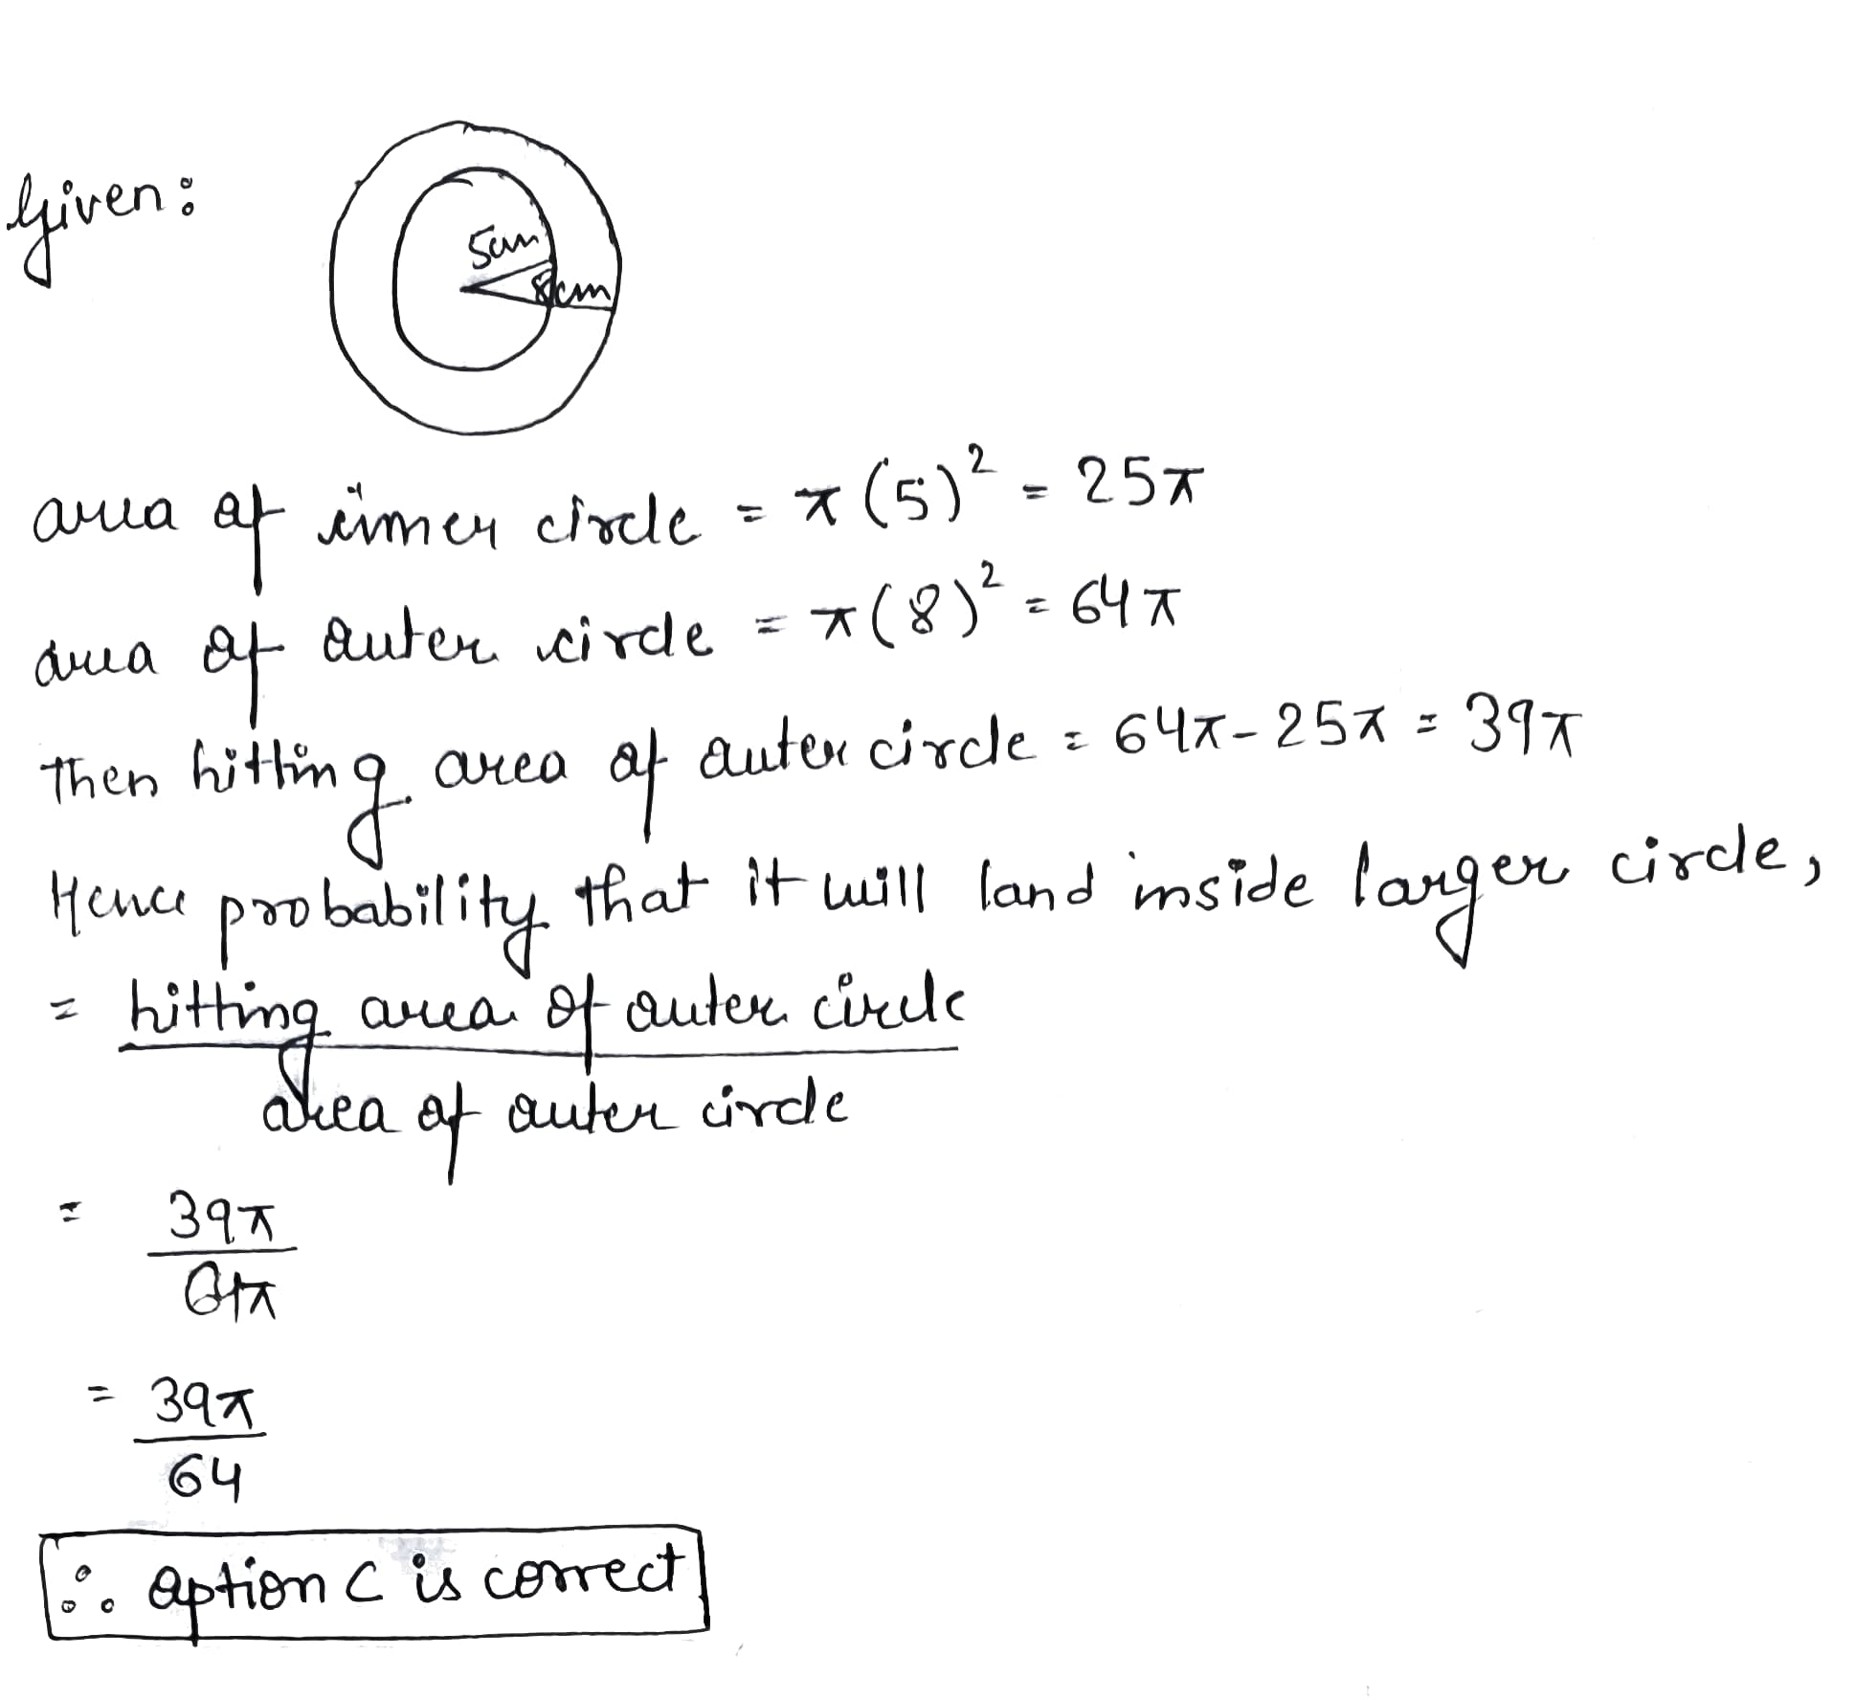 Given:
5cm
8cm
area of inner circle = π(5)² = 25π
area of outer circle = π(8)² = 64π
Then hitting area of outer circle = 64π - 25π = 39π
Hence probability that it will land inside larger circle,
= hitting area of outer circle
area of outer circle
= 39π
64π
= 39π
64
∴ option C is correct